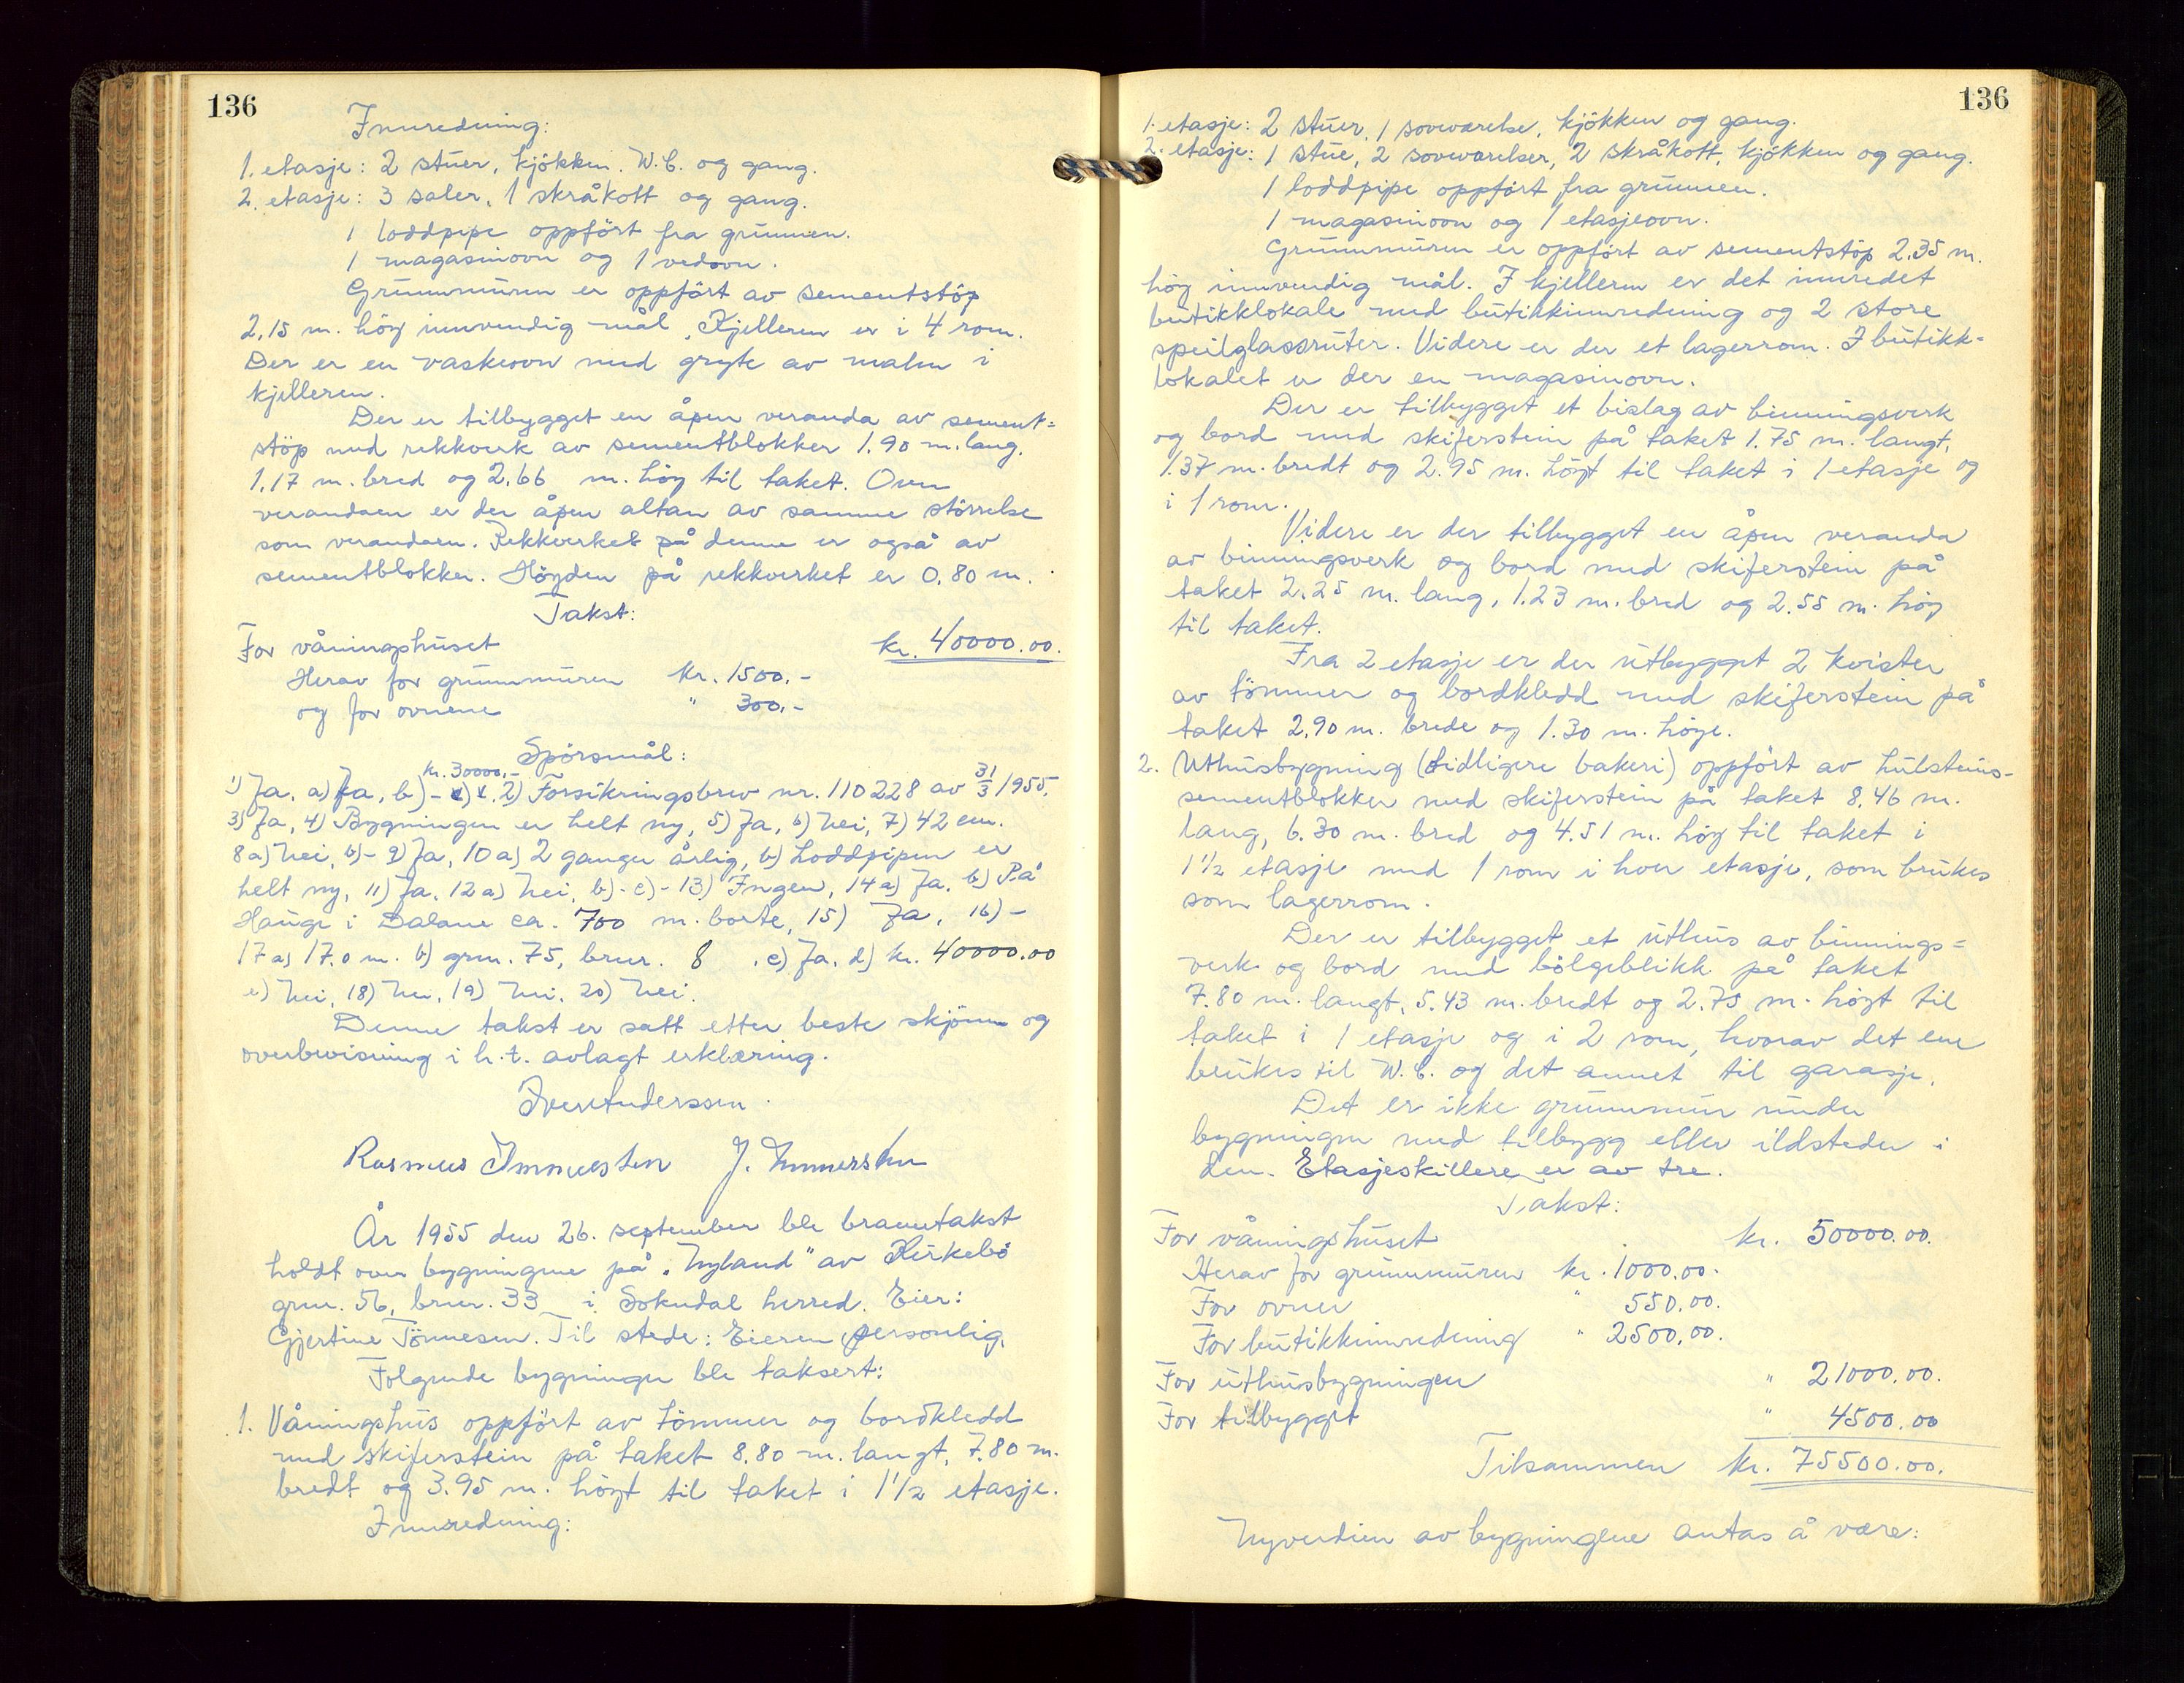 136
Innredning:
1. etasje: 2 stuer, kjökken. W.C. og gang.
2. etasje: 3 saler, 1 skråkott og gang.
1 loddpipe oppfört fra grunnen.
1 magasinovn og 1 vedovn.
Grunnmuren er oppfört av sementstöp
2,15 m. höy innvendig mål. Kjelleren er i 4 rom.
Der er en vaskeovn med gryte av malm i
kjelleren.
Der er tilbygget en åpen veranda av sement=
stöp med rekkverk av sementblokker 1.90 m. lang.
1,17 m. bred og 2,66 m. höy til taket. Over
verandaen er der åpen altan av samme störrelse
som verandaen. Rekkverket på denne er også av
sementblokker. Höyden på rekkverket er 0,80 m.
Takst:
For våningshuset kr. 40000.00.
Herav for grunnmuren kr. 1500.-
og for ovnene " 300.-
Spörsmål:
kr. 30000.-
1) Ja, a) Ja, b) - c) . 2) Forsikringsbrev nr. 110228 av 31/3 1955,
3) Ja, 4) Bygningen er helt ny, 5) Ja, 6) Nei, 7) 42 cm.
8 a) Nei, b) - 9) Ja, 10 a) 2 ganger årlig, b) Loddpipen er
helt ny, 11) Ja. 12 a) Nei, b) - c) - 13) Ingen, 14 a) Ja. b) På
Hauge i Dalane ca. 700 m. borte, 15) Ja, 16) -
17 a) 17.0 m. b) grnr. 75, brnr. 8 . c) Ja. d) kr. 40000.00
e) Nei, 18) Nei, 19) Nei, 20) Nei.
Denne takst er satt etter beste skjönn og
overbevisning i h.t. avlagt erklæring.
Iver Anderssen.
Rasmus Immerstein J. Immerstein
År 1955 den 26. september ble branntakst
holdt over bygningene på "Nyland" av Kirkebö
grnr. 56, brnr. 33 i Sokndal herred. Eier:
Gjertine Tönnesen. Til stede: Eieren personlig.
Fölgende bygninger ble taksert:
1. Våningshus oppfört av tömmer og bordkledd
med skiferstein på taket 8.80 m. langt, 7.80 m.
bredt og 3.95 m. höyt til taket i 1 1/2 etasje.
Innredning:
136
1. etasje: 2 stuer, 1 soveværelse, kjökken og gang.
2. etasje: 1 stue, 2 soveværelser, 2 skråkott, kjökken og gang.
1 loddpipe oppfört fra grunnen.
1 magasinovn og 1 etasjeovn.
Grunnmuren er oppfört av sementstöp 2,35 m.
höy innvendig mål. I kjelleren er det innredet
butikklokale med butikkinnredning og 2 store
speilglassruter. Videre er der et lagerrom. I butikk=
lokalet er der en magasinovn.
Der er tilbygget et bislag av binningsverk
og bord med skiferstein på taket 1.75 m. langt,
1.37 m. bredt og 2.95 m. höyt til taket i 1 etasje og
i 1 rom.
Videre er der tilbygget en åpen veranda
av binningsverk og bord med skiferstein på
taket 2.25 m. lang, 1.23 m. bred og 2.55 m. höy
til taket.
Fra 2 etasje er der utbygget 2 kvister
av tömmer og bordkledd med skiferstein på
taket 2,90 m. brede og 1.30 m. höye.
2. Uthusbygning (tidligere bakeri) oppfört av hulsteins-
sementblokker med skiferstein på taket 8,46 m.
lang, 6.30 m. bred og 4.51 m. höy til taket i
1 1/2 etasje med 1 rom i hver etasje, som brukes
som lagerrom.
Der er tilbygget et uthus av binnings=
verk og bord med bölgeblikk på taket
7.80 m. langt, 5.43 m. bredt og 2.75 m. höyt til
taket i 1 etasje og i 2 rom, hvorav det ene
brukes til W.C. og det annet til garasje.
Det er ikke grunnmur under
bygningen med tilbygg eller ildsteder i
den. Etasjeskillere er av tre.
Takst:
For våningshuset kr. 50000.00.
Herav for grunnmuren kr. 1000.00.
For ovner " 550.00.
For butikkinnredning " 2500.00.
For uthusbygningen " 21000.00.
For tilbygget " 4500.00
Tilsammen kr. 75500.00.
Nyverdien av bygningene antas å være: